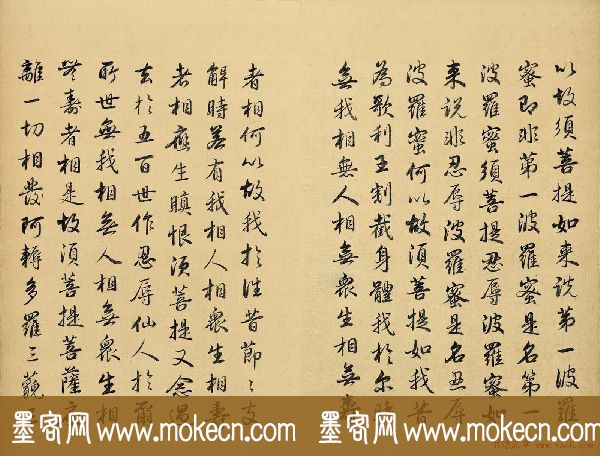 以故須菩提如来说第一波羅
蜜即非第一波羅蜜是名第一
波羅蜜須菩提忍辱波羅蜜如
来说非忍辱波羅蜜是名忍辱
波羅蜜何以故須菩提如我昔
為歌利王割截身體我於尔時
無我相無人相無衆生相無壽
者相何以故我於往昔節〻支
解時若有我相人相衆生相壽
者相應生瞋恨須菩提又念過
去於五百世作忍辱仙人於爾
所世無我相無人相無衆生相
無壽者相是故須菩提菩薩
離一切相發阿耨多羅三藐
墨客网 www.mokecn.com 墨客网 www.mokecn.com